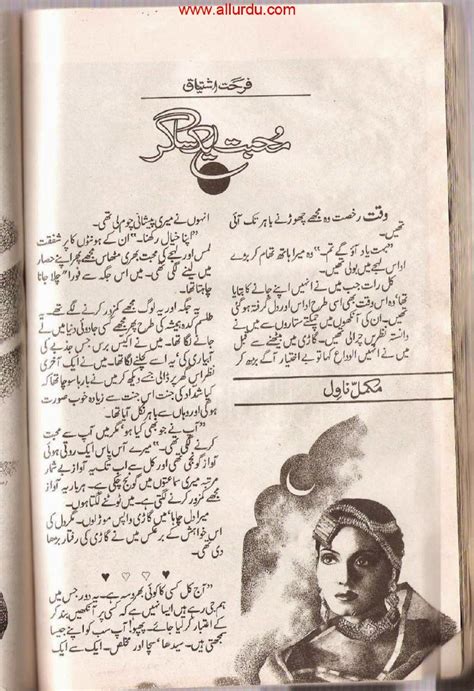 www.allurdu.com
فرحت اشتیاق
محبت ایک ساگر
وقت رخصت وہ مجھے چھوڑنے باہر تک آئی
تھیں۔
”بہت یاد آؤ گے تم۔“ وہ میرا ہاتھ تھام کر بڑے
اداس لہجے میں بولی تھیں۔
کل رات جب میں نے انہیں اپنے جانے کا بتایا
تھا‘ وہ اس وقت بھی اسی طرح اداس اور دل گرفتہ ہو گئی
تھیں۔ ان کی آنکھوں میں چمکتے ستاروں سے میں نے
دانستہ نظریں چرائی تھیں۔ گاڑی میں بیٹھنے سے قبل
میں نے انہیں الوداع کہا تو بے اختیار آگے بڑھ کر
مکمل ناول
انہوں نے میری پیشانی چوم لی تھی۔
”اپنا خیال رکھنا۔“ ان کے ہونٹوں کا پر شفقت
لمس اور لہجے کی محبت بھری مٹھاس مجھے پھر اپنے حصار
میں لینے لگی تھی۔ میں اس جگہ سے فورا“ چلا جانا
چاہتا تھا۔
یہ جگہ اور یہ لوگ مجھے کمزور کرنے لگے تھے۔ یہ
طلسم کدہ ہمیشہ کی طرح پھر مجھے کسی جادوئی دنیا میں
لے جانے لگا تھا۔ میں نے اکیس برس جس جذبے کی
آبیاری کی تھی‘ یہ اسے مٹانے لگا تھا۔ میں نے ایک آخری
نظر اس گھر پر ڈالی جسے دیکھ کر میں نے بارہا سوچا تھا کہ
کیا شداد کی جنت اس جنت سے زیادہ خوب صورت
ہو گی اور وہاں سے باہر نکل آیا تھا۔
”آپ نے جو بھی کیا ہو‘ مگر میں آپ سے محبت
کرنے لگی تھی۔“ میرے آس پاس ایک روتی ہوئی
آواز گونجی تھی اور کل سے اب تک یہ آواز بے شمار
مرتبہ میری سماعتوں میں گونج چکی ہے۔ ہر بار یہ آواز
مجھے کمزور کرنے لگتی ہے۔ میں ٹوٹنے لگتا ہوں۔
میرا دل چاہا‘ میں گاڑی واپس موڑ لوں۔ مگر دل کی
اس خواہش کے برعکس میں نے گاڑی کی رفتار بڑھا
دی تھی۔
♥ ♥ ♥ ♥
”آج کل کسی کا کوئی بھروسہ ہے۔ یہ دور جس میں
ہم جی رہے ہیں ایسا نہیں ہے کہ کسی پر آنکھیں بند کر
کے اعتبار کر لیا جائے۔ پھپھو! آپ سب کو اپنے جیسا
سمجھتی ہیں۔ سیدھا‘ سچا اور مخلص۔ ایک سے ایک